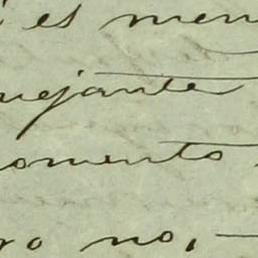 es men
uejante
omento
ro no,